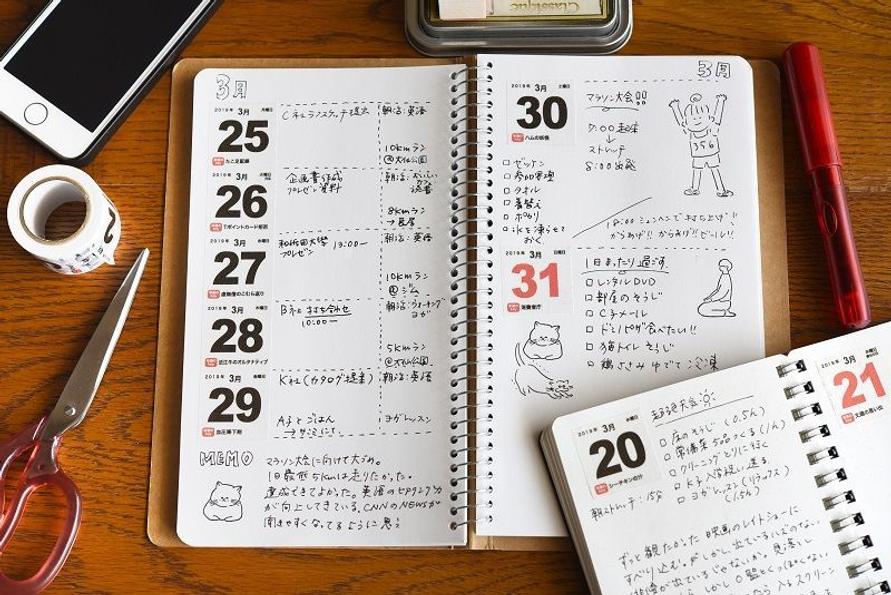 Classique
3月
2019年 3月 月曜日
25
たこ足配線
朝活:英語
10kmラン
@大仏公園
2019年 3月
26
Tポイントカード拒否
企画書作成
プレゼン資料
8kmラン
2019年 3月 水曜日
27
プレゼン 13:00〜
朝活:英語
10kmラン
@ジム
2019年 3月 木曜日
28
近江牛のオルタナティブ
B社 打ち合わせ
10:00〜
朝活:ウォーキング
ヨガ
5kmラン
@大仏公園
2019年 3月 金曜日
29
血圧降下剤
K社(カタログ提案)
朝活:英語
A子とごはん
ヨガレッスン
MEMO
マラソン大会に向けて大づめ。
1日最低5kmは走りたかった。
達成できてよかった。英語のヒヤリング力
が向上してきている。CNNのNEWSが
聞きやすくなってるように思う
3月
2019年 3月 土曜日
30
ハムの妖怪
マラソン大会!!
7:00起床
↓
ストレッチ
8:00出発
356
□ゼッケン
□参加要項
□タオル
□着替え
□ポカリ
・氷を凍らせて
おく
18:00 シュハンで打ち上げ!!
からあげ!!からあげ!!ビール!!
2019年 3月 日曜日
31
消費者庁
1日まったり過ごす
□レンタルDVD
□部屋のそうじ
□C子メール
□ドミノピザ食べたい!!
□猫トイレそうじ
□鶏ささみゆでて
2019年 3月 水曜日
20
シーチキンの汁
□床のそうじ(0.5h)
□常備菜5品つくる(1h)
□クリーニングとりに行く
□K子入学祝い送る
□ヨガレッスン(リラックス)
(1.5h)
朝ストレッチ:15分
3月 木曜日
21
ずっと観たかった映画のレイトショーに
すべり込む。